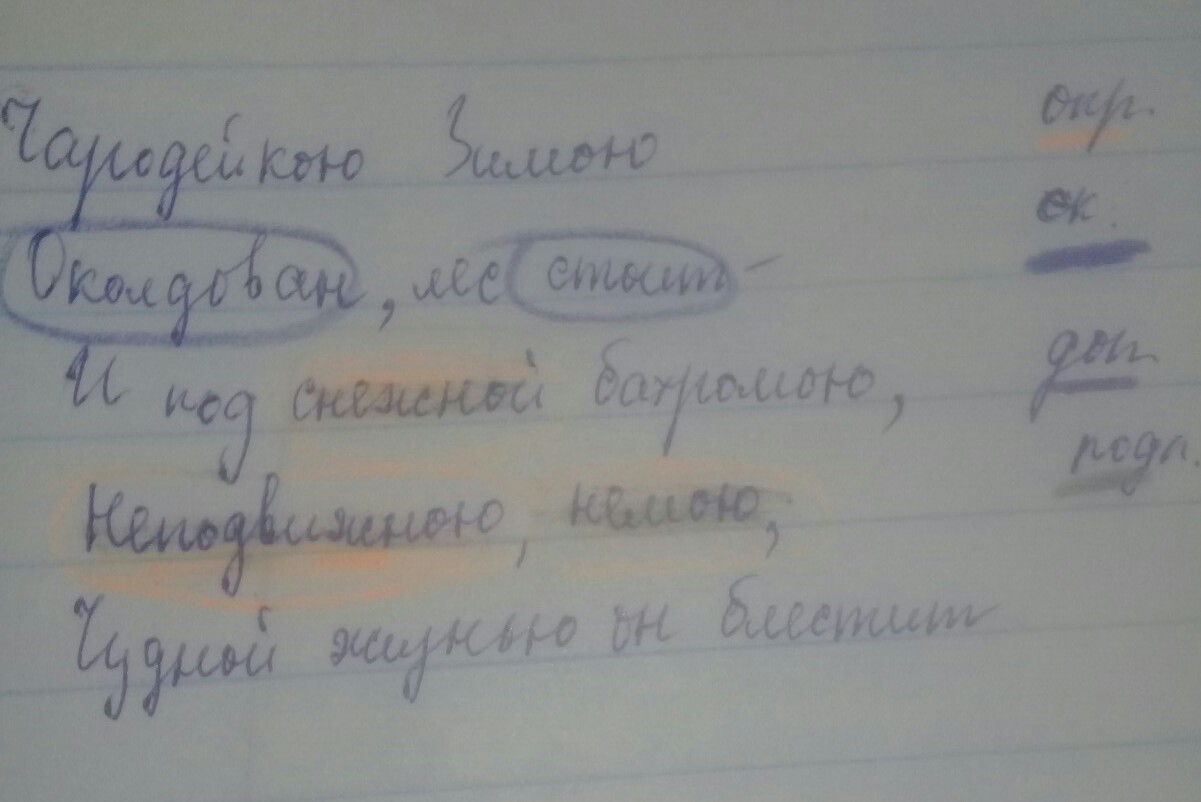 Чародейкою Зимою
Околдован, лес стоит –
И под снежной бахромою,
Неподвижною, немою,
Чудной жизнью он блестит
опр.
ск.
доп.
подл.